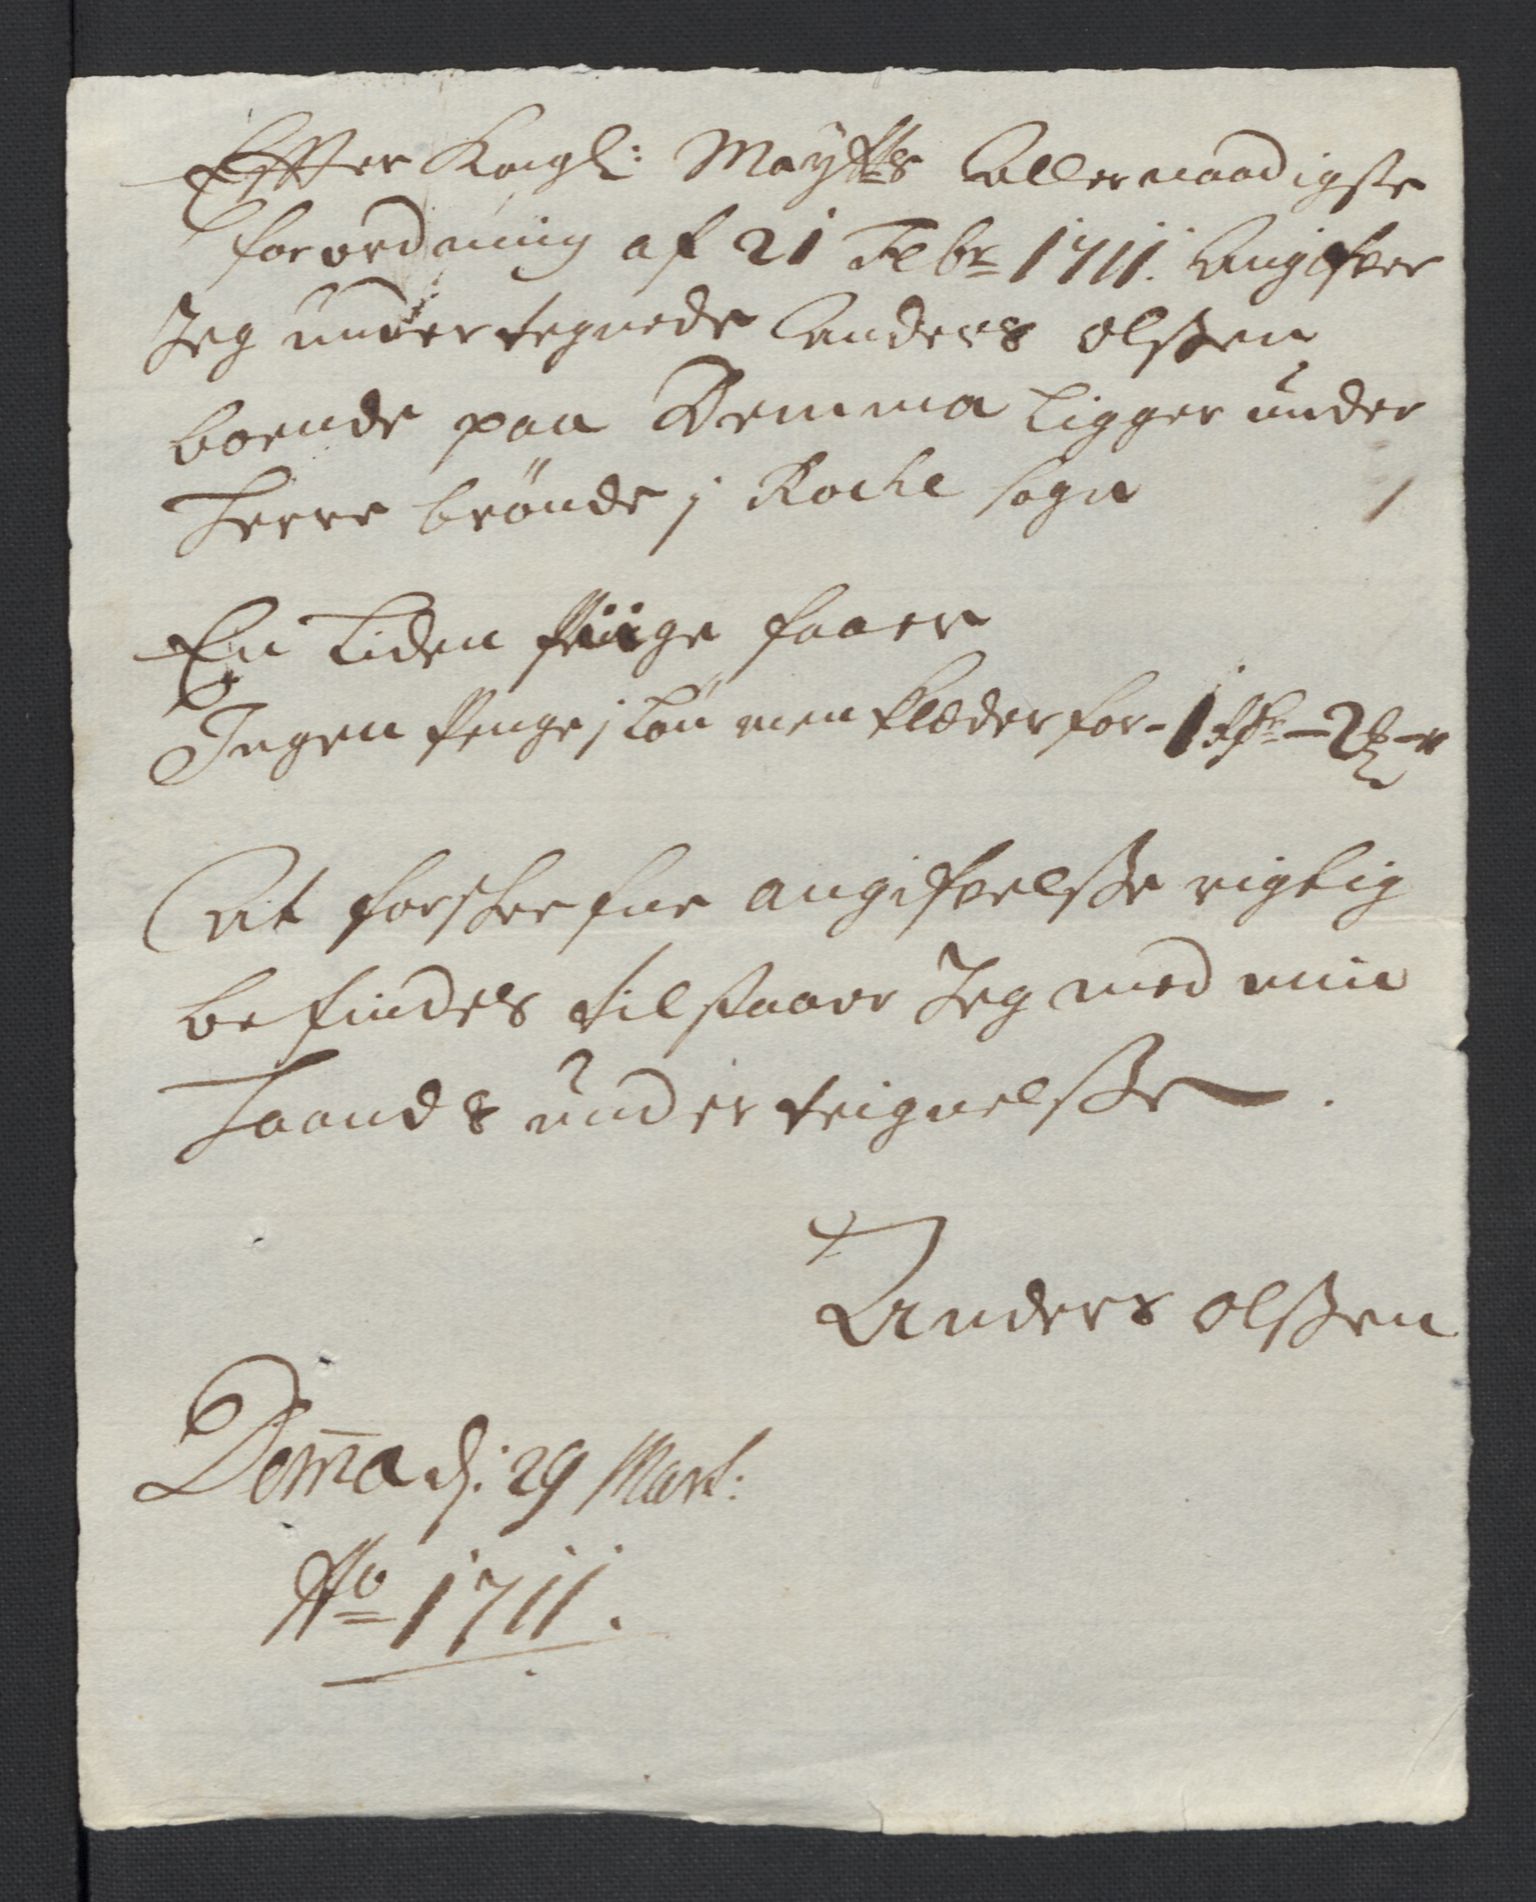 Effter Kongl: Mayttes Allernaadigste
forordning af 21 Febr 1711. Angifver
Jeg undertegnede Anders olßen
boende paa Demma Ligger under
Herre brönde j Rocke sogn
En Liden Piige faaer
Ingen Penge j Lön men klæder for - 1 Rdr - 2 ß -
At forskrefne angifvelsse rigtig
befindes tilstaaer Jeg med min
Haands underteignelsse.
Anders olßen
Dem̄a d: 29 Mart:
Ao 1711.